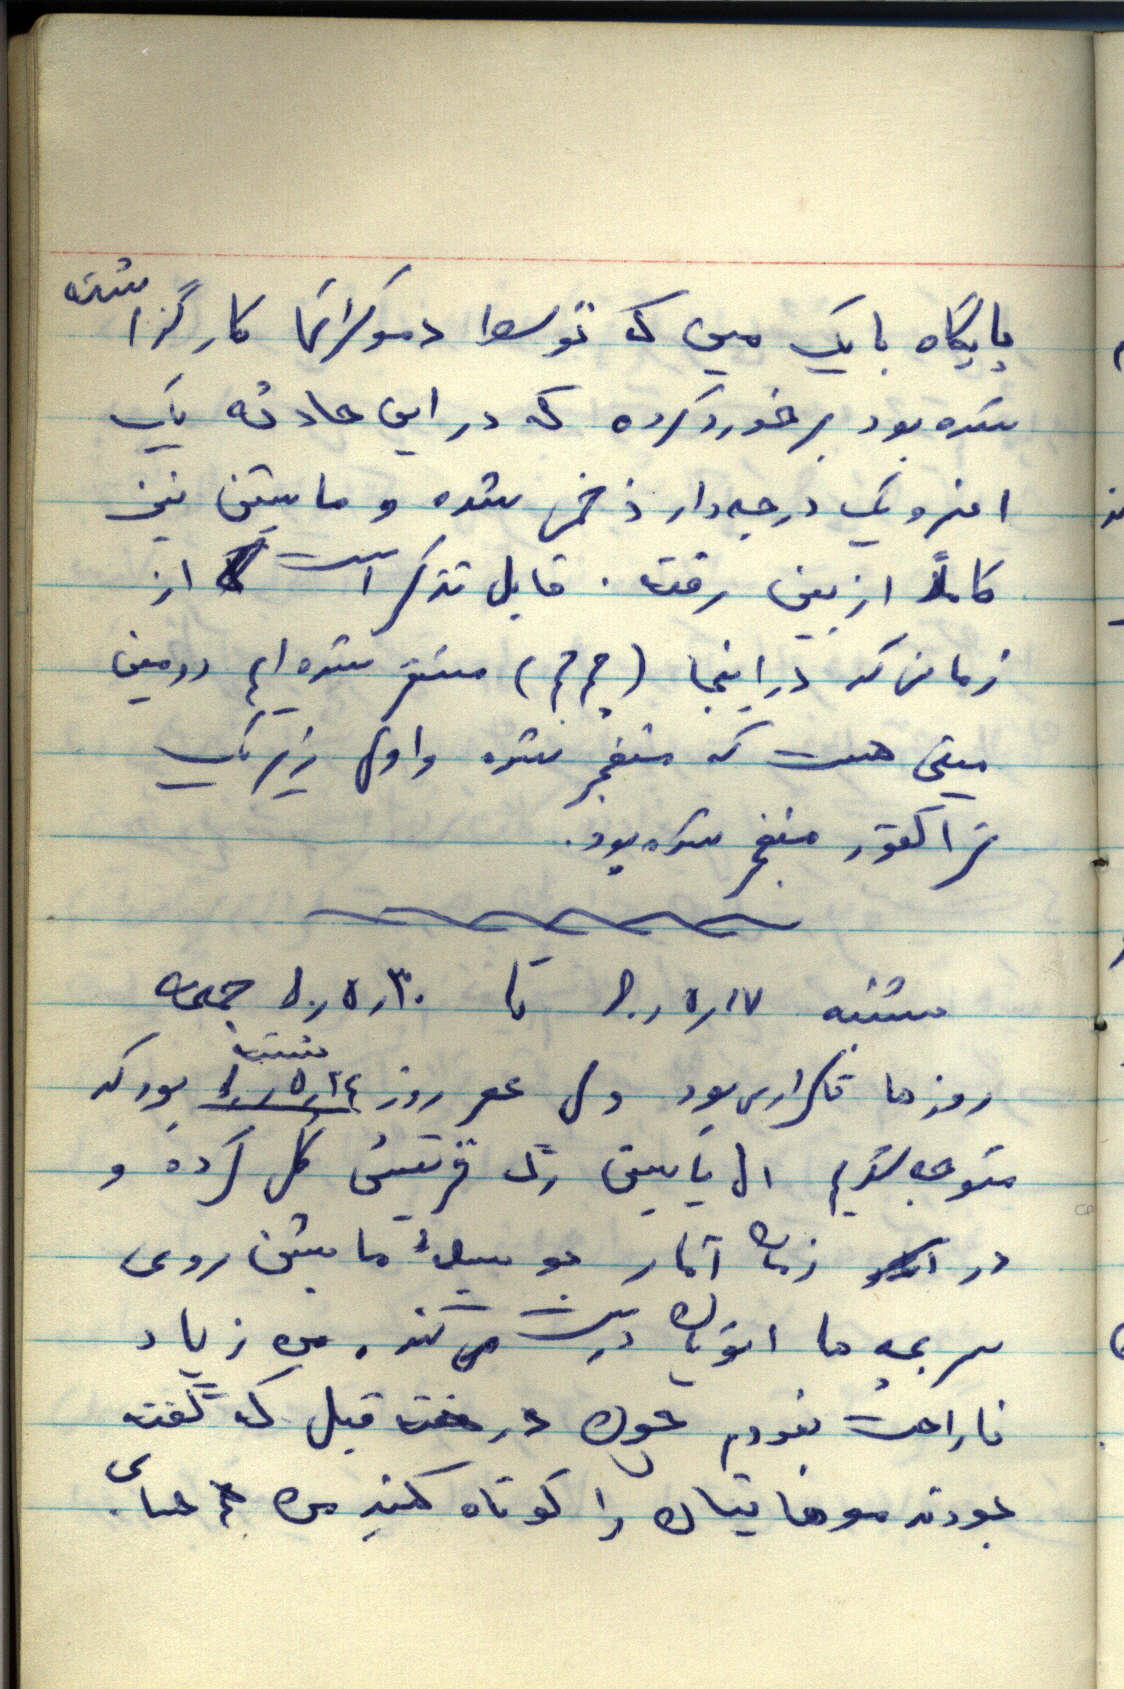 پایگاه با یک مین که توسط دموکراتها کار گزاشته
شده بود برخورد کرده که در این حادثه یک
افسر و یک درجه دار زخمی شده و ماشین نیز
کاملاً از بین رفته . قابل تذکر است از
زمانی که در اینجا (    ) مستقر شده ایم دومین
مینی هست که منفجر شده و اولی زیر یک
تراکتور منفجر شده بود.
شنبه ۶۰٫۵٫۱۷ تا ۶۰٫۵٫۳۰ جمعه
روزها تکراری بود ولی عصر روز شنبه ۲۴٫۵٫ بود که
متوجه شدیم    پایین رگ    گل کرده و
در    زمان آمار بوسیله ماشین روی
سر بچه ها اتوبان درست می کند . من زیاد
ناراحت نبودم چون در هفته قبل که گفته
بودند موهایتان را کوتاه کنید من    حسابی